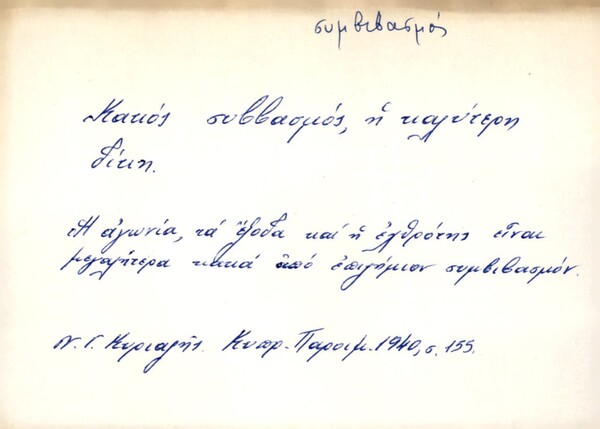 συμβιβασμός
Κακός συββασμός, ἤ καλύτερη
δίκη.
Ἡ ἀγωνία, τά ἔξοδα καί ἡ ἐχθρότης εἶναι
μεγαλήτερα κακά ἀπό ἐπιζήμιον συμβιβασμόν.
Ν. Γ. Κυριαζῆς. Κυπρ. Παροιμ. 1940, σ. 155.